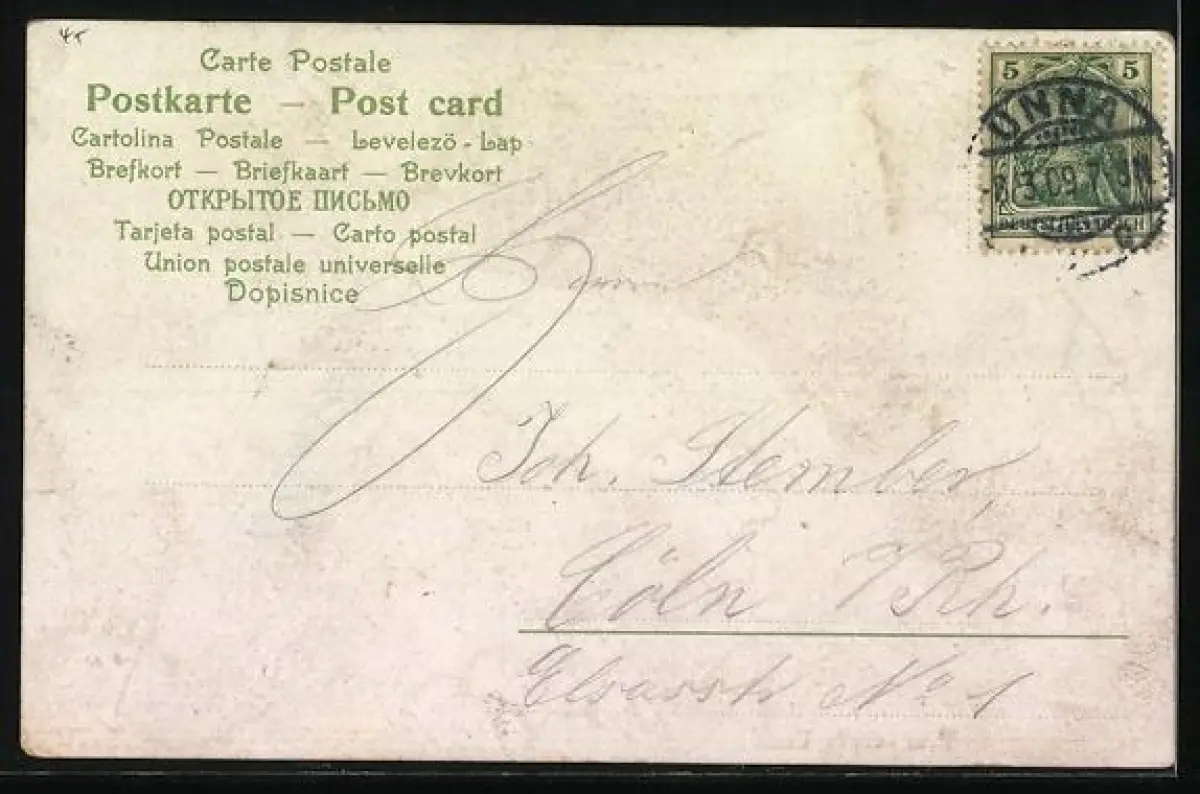 Carte Postale
Postkarte — Post card
Cartolina Postale — Levelező-Lap
Brefkort — Briefkaart — Brevkort
ОТКРЫТОЕ ПИСЬМО
Tarjeta postal — Carto postal
Union postale universelle
Dopisnice
5 5
UNNA
3.09.7
DEUTSCHES REICH
Joh. Stember,
Cöln a/Rh.
Elsassstr No 1